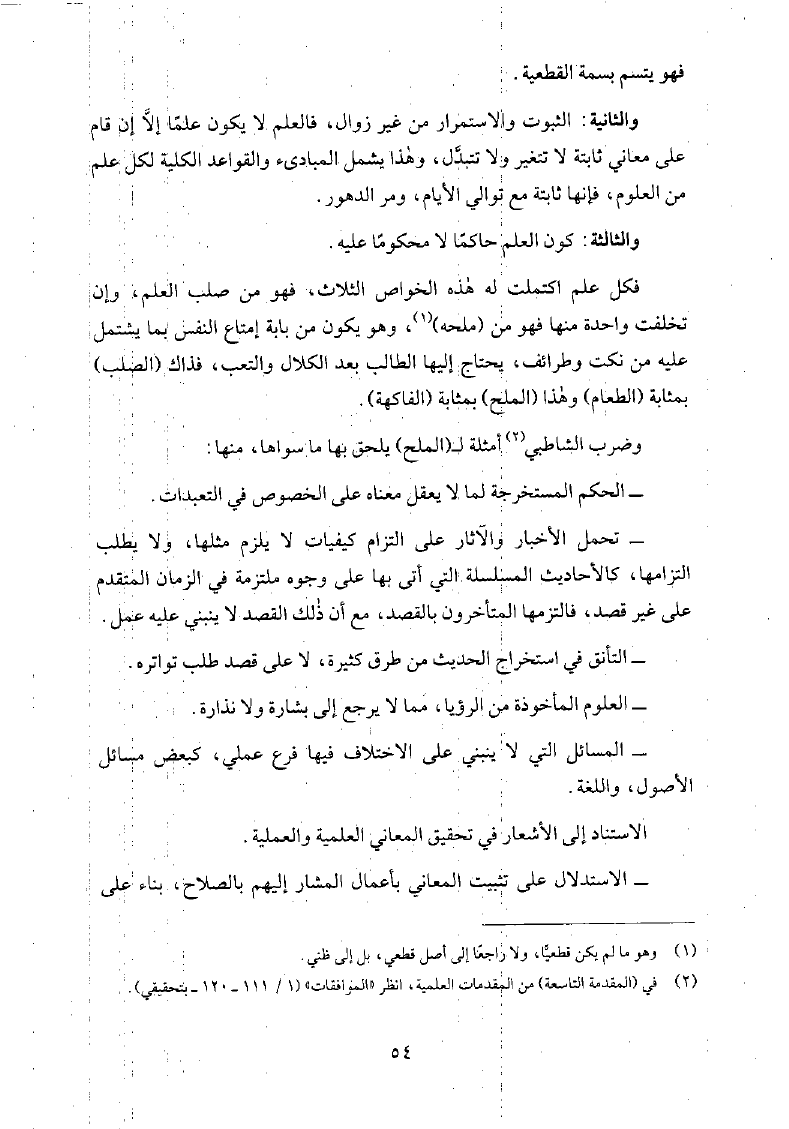 فهو يتسم بسمة القطعية .
والثانية : الثبوت والاستمرار من غير زوال، فالعلم لا يكون علمًا إلاَّ إن قام
على معاني ثابتة لا تتغير ولا تتبدَّل، وهٰذا يشمل المبادىء والقواعد الكلية لكل علم
من العلوم، فإنها ثابتة مع توالي الأيام، ومر الدهور .
والثالثة : كون العلم حاكمًا لا محكومًا عليه .
فكل علم اكتملت له هٰذه الخواص الثلاث، فهو من صلب العلم، وإن
تخلفت واحدة منها فهو من (ملحه)(١)، وهو يكون من بابة إمتاع النفس بما يشتمل
عليه من نكت وطرائف، يحتاج إليها الطالب بعد الكلال والتعب، فذاك (الصلب)
بمثابة (الطعام) وهٰذا (الملح) بمثابة (الفاكهة) .
وضرب الشاطبي(٢) أمثلة لـ(الملح) يلحق بها ما سواها، منها :
ــ الحكم المستخرجة لما لا يعقل معناه على الخصوص في التعبدات .
ــ تحمل الأخبار والآثار على التزام كيفيات لا يلزم مثلها، ولا يطلب
التزامها، كالأحاديث المسلسلة التي أتى بها على وجوه ملتزمة في الزمان المتقدم
على غير قصد، فالتزمها المتأخرون بالقصد، مع أن ذٰلك القصد لا ينبني عليه عمل .
ــ التأنق في استخراج الحديث من طرق كثيرة، لا على قصد طلب تواتره .
ــ العلوم المأخوذة من الرؤيا، مما لا يرجع إلى بشارة ولا نذارة .
ــ المسائل التي لا ينبني على الاختلاف فيها فرع عملي، كبعض مسائل
الأصول، واللغة .
الاستناد إلى الأشعار في تحقيق المعاني العلمية والعملية .
ــ الاستدلال على تثبيت المعاني بأعمال المشار إليهم بالصلاح، بناء على
(١) وهو ما لم يكن قطعيًّا، ولا راجعًا إلى أصل قطعي، بل إلى ظني .
(٢) في (المقدمة التاسعة) من المقدمات العلمية، انظر «الموافقات» (١ / ١١١ ــ ١٢٠ ــ بتحقيقي) .
٥٤